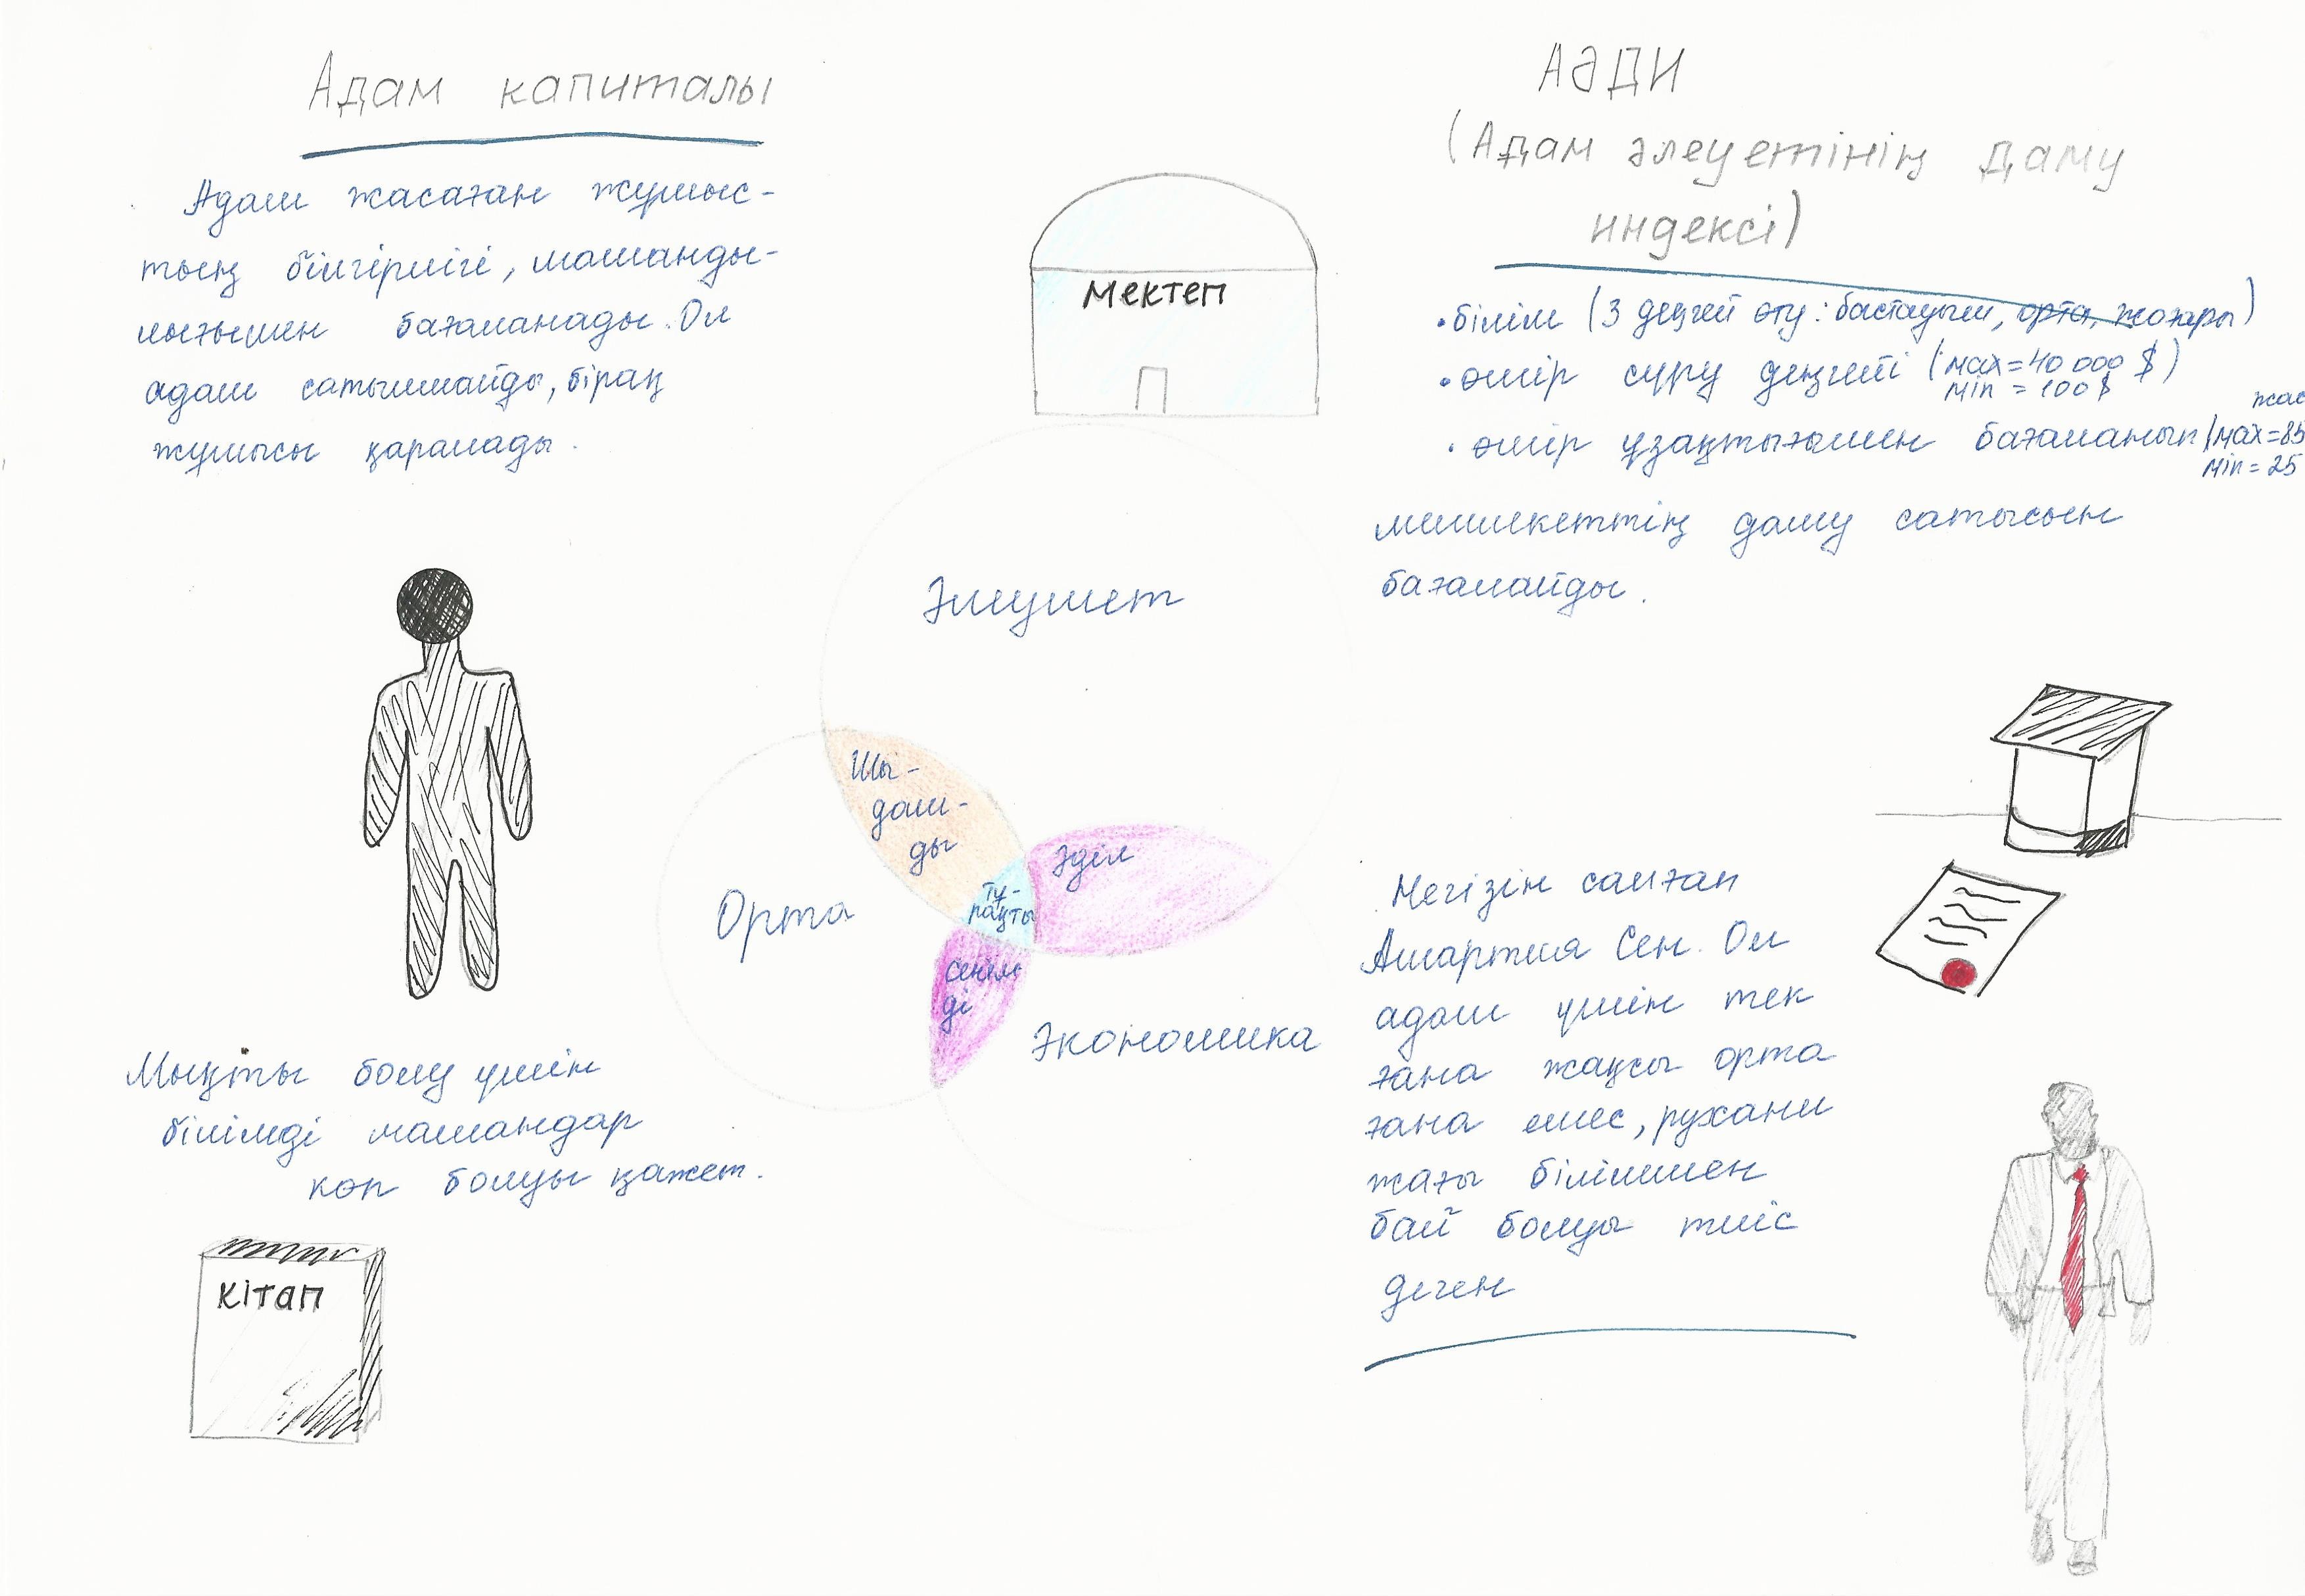 Адам капиталы
Адам жасаған жұмыс-
тың білгірлігі, маманды-
лығымен бағаланады. Ол
адам сатылмайды, бірақ
жұмысы қаралады.
Мықты болу үшін
білімді мамандар
көп болуы қажет.
кітап
мектеп
Әлеумет
Шы-
дам-
ды
Әділ
Тұ-
рақты
Орта
Сенім
ді
Экономика
АӘДИ
(Адам әлеуетінің даму
индексі)
• білім (3 деңгей өту: бастауыш, орта, жоғары)
• өмір сүру деңгейі (max=40 000 $)
min = 100$
жас
• өмір ұзақтығымен бағаланып (max=85
min = 25
мемлекеттің даму сатысын
бағалайды.
Негізін салған
Амартия Сен. Ол
адам үшін тек
ғана жақсы орта
ғана емес, рухани
жағы біліммен
бай болуы тиіс
деген